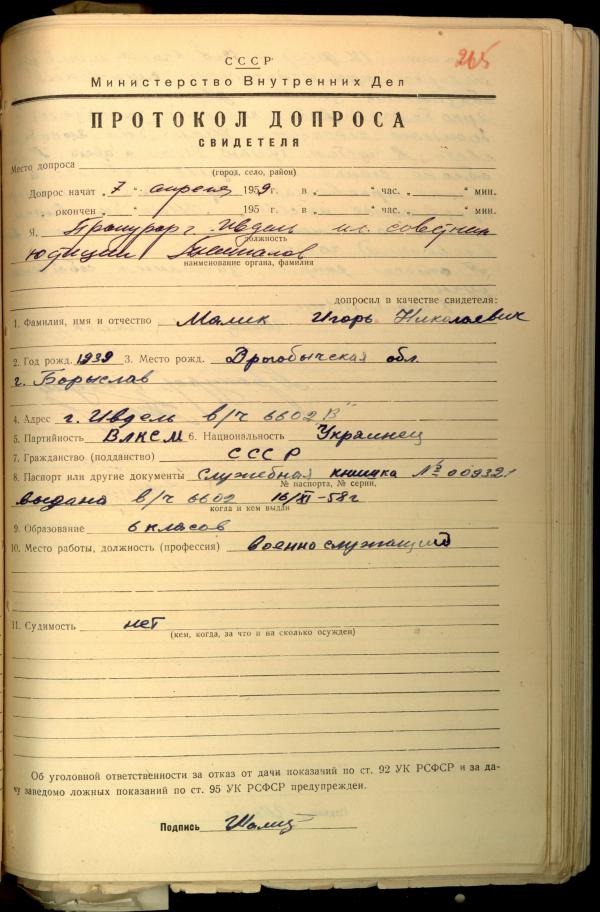 265
СССР
Министерство Внутренних Дел
ПРОТОКОЛ ДОПРОСА
СВИДЕТЕЛЯ
Место допроса
(город, село, район)
Допрос начат „ 7 “ апреля 1959 г. в „ “ час. „ “ мин.
окончен „ “ 195 г. в „ “ час. „ “ мин.
Я, Прокурор г. Ивдель мл. советник
должность
юстиции
наименование органа, фамилия
допросил в качестве свидетеля:
1. Фамилия, имя и отчество Малик Игорь Николаевич
2. Год рожд. 1939 3. Место рожд. Дрогобычская обл.
г. Борыслав
4. Адрес г. Ивдель в/ч 6602 "В"
5. Партийность ВЛКСМ 6. Национальность Украинец
7. Гражданство (подданство) СССР
8. Паспорт или другие документы Служебная книжка №
№ паспорта, № серии,
выдана в/ч 6602 16/XI-58г
когда и кем выдан
9. Образование 6 класов
10. Место работы, должность (профессия) военнослужащий
11. Судимость нет
(кем, когда, за что и на сколько осужден)
Об уголовной ответственности за отказ от дачи показаний по ст. 92 УК РСФСР и за да-
чу заведомо ложных показаний по ст. 95 УК РСФСР предупрежден.
Подпись Малик